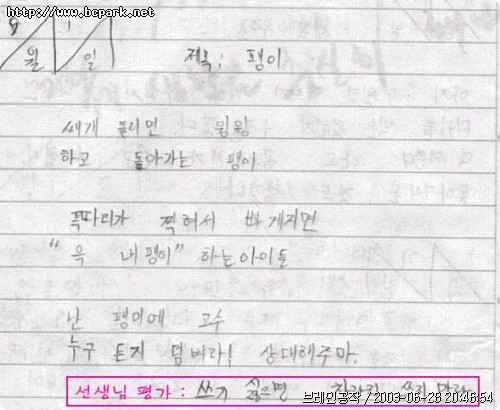 http://www.bcpark.net
월 일
제목: 팽이
쌔게 돌리면 윙윙
하고 돌아가는 팽이
꼭따리가 찍혀서 빠게지면
"윽 내팽이" 하는아이들
난 팽이에 고수
누구 든지 덤비라! 상대해주마.
선생님 평가 : 쓰기 싫으면 차라리 쓰지 말라
브레인공작 / 2003-06-28 20:46:54